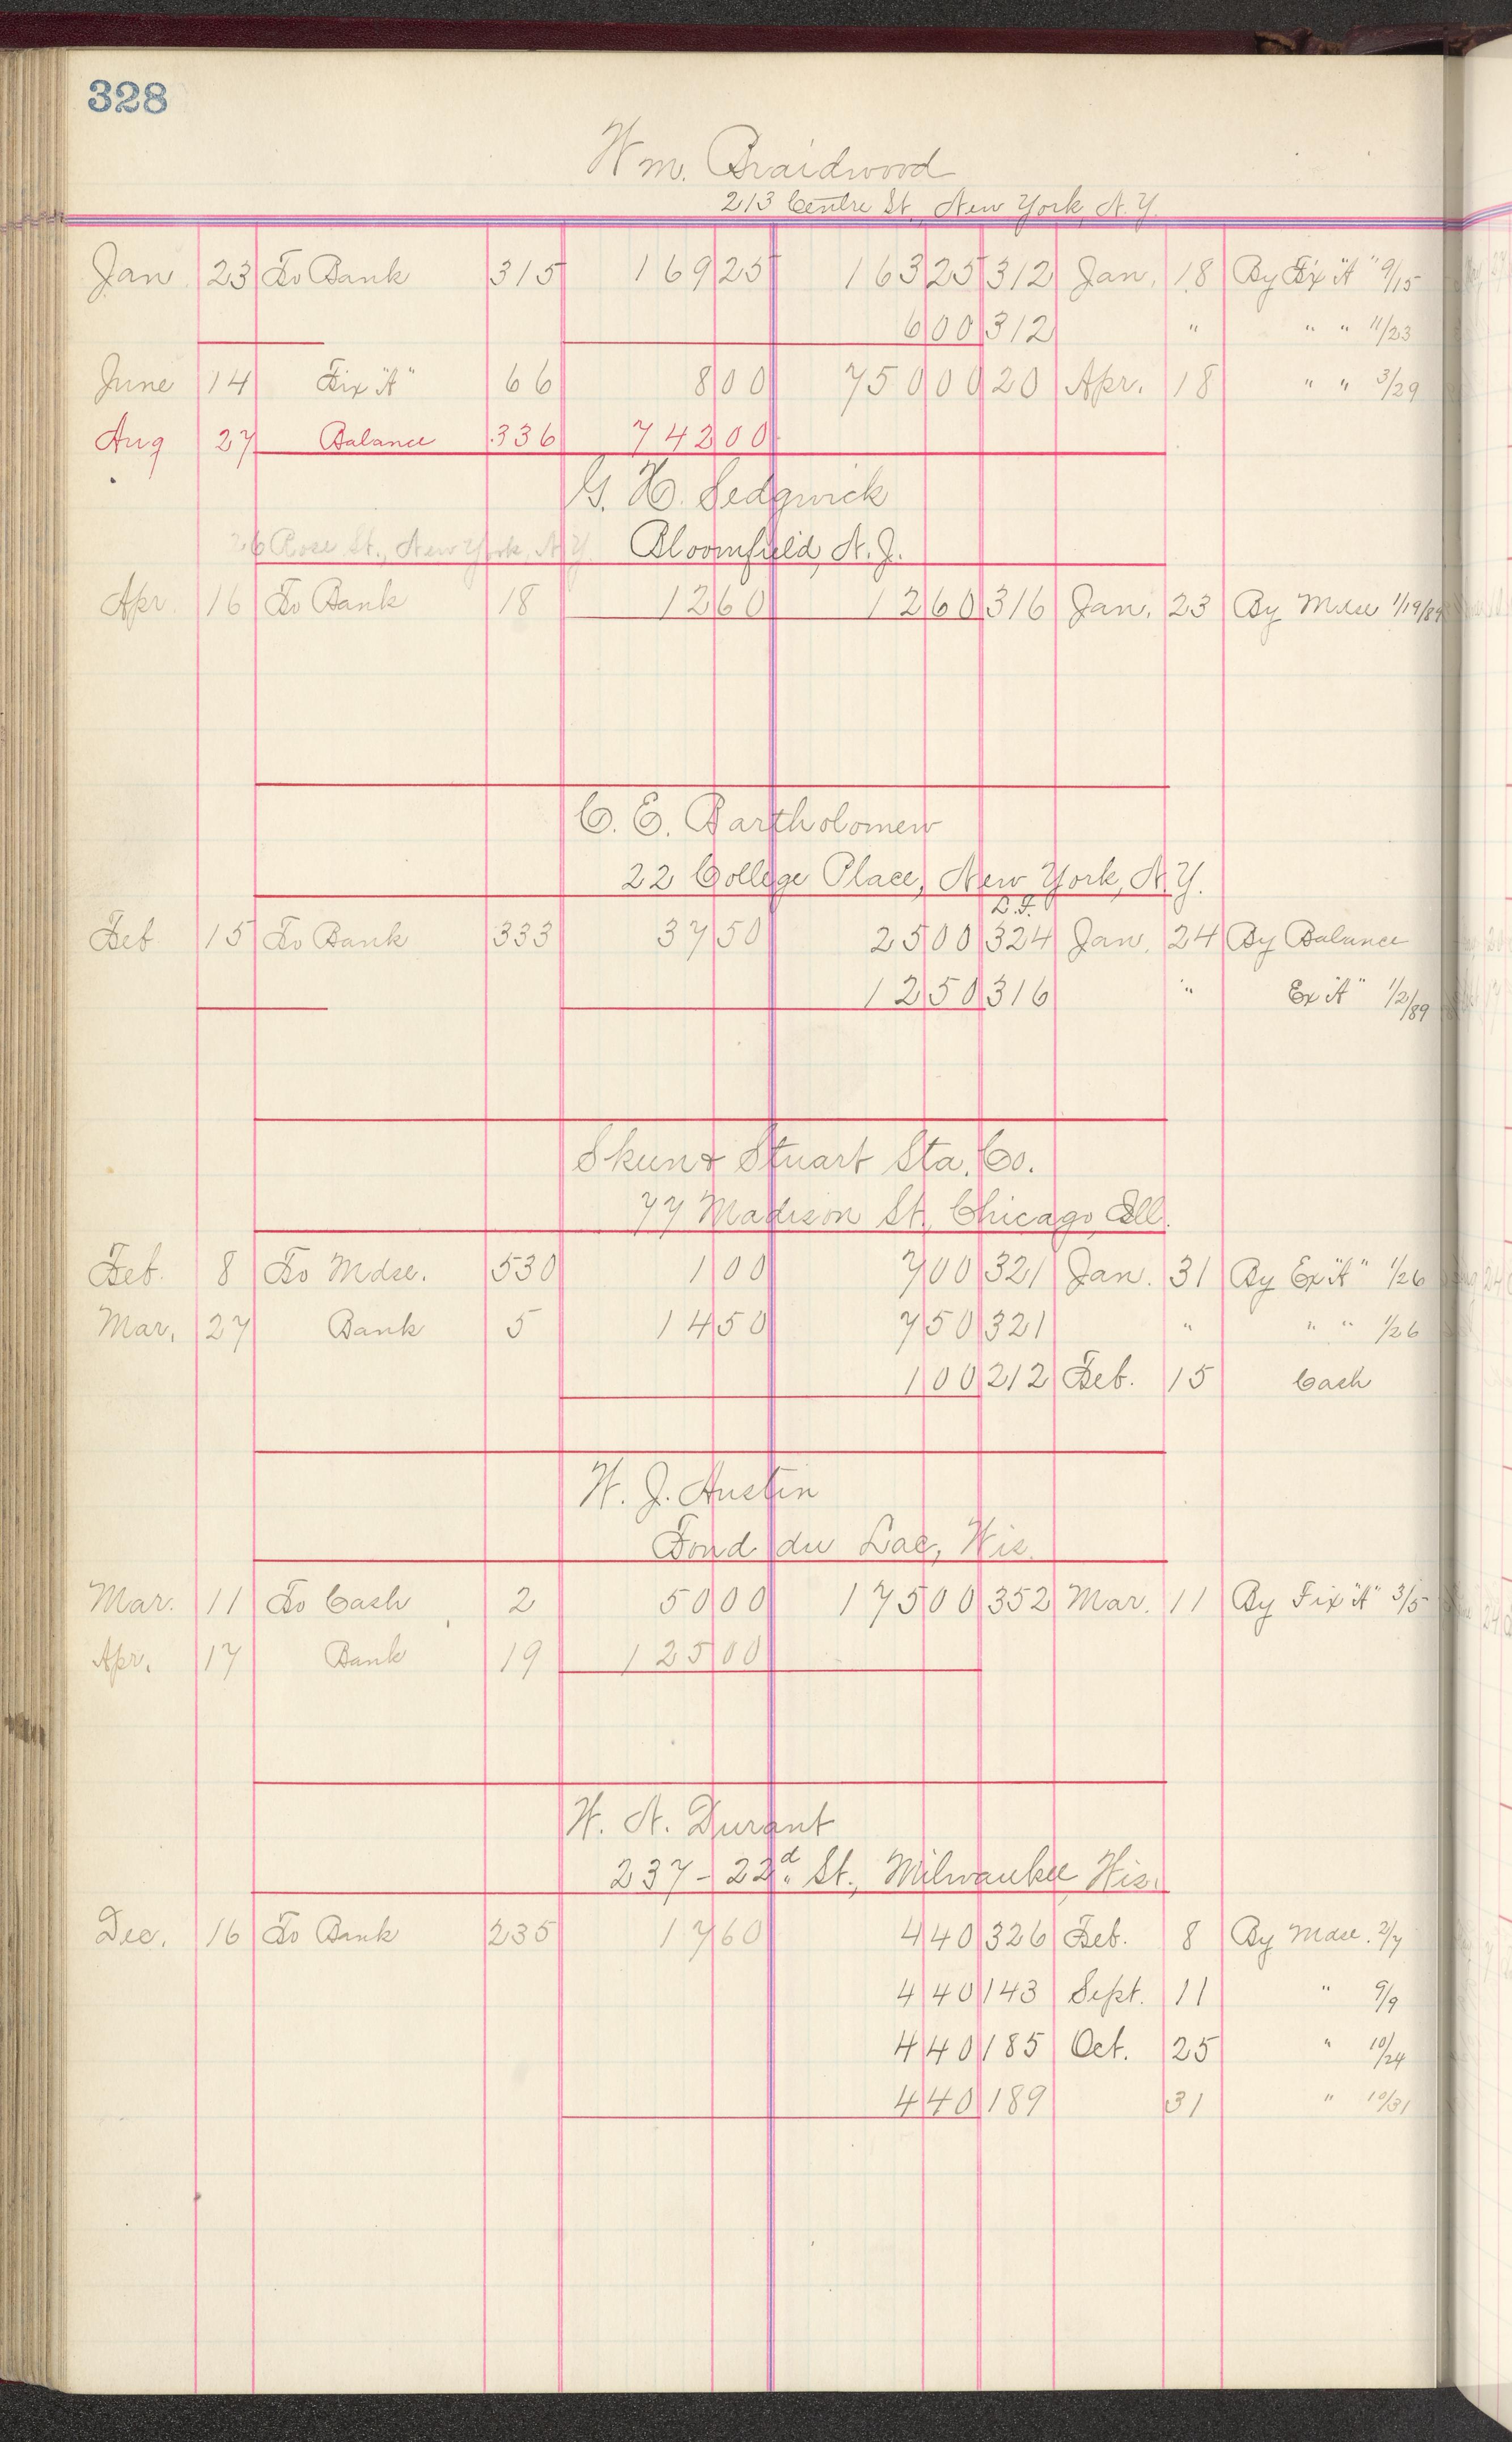 328
Wm. Braidwood
213 Centre St. New York, N.Y.
Jan 23 To Bank 315 169 25 163 25 312 Jan. 18 By Fix "A" 9/15
6 00 312 " " " 11/23
June 14 Fix "A" 66 8 00 750 00 20 Apr. 18 " " 3/29
Aug 27 Balance 336 742 00
G. H. Sedgwick
26 Rose St., New York, N.Y. Bloomfield, N.J.
Apr. 16 To Bank 18 12 60 12 60 316 Jan. 23 By Mdse 1/19/89
C. E. Bartholomew
22 College Place, New York, N.Y.
Feb 15 To Bank 333 37 50 25 00 324 Jan. 24 By Balance
12 50 316 " Ex "A" 1/2/89
Stuart Sta. Co.
77 Madison St. Chicago, Ill.
Feb. 8 To Mdse. 530 1 00 7 00 321 Jan. 31 By Ex "A" 1/26
Mar. 27 Bank 5 14 50 7 50 321 " " " 1/26
1 00 212 Feb. 15 Cash
W. J. Austin
Fond du Lac, Wis.
Mar. 11 To Cash 2 50 00 175 00 352 Mar. 11 By Fix "A" 3/5
Apr. 17 Bank 19 125 00
W. A. Durant
237 - 22d. St., Milwaukee Wis.
Dec. 16 To Bank 235 17 60 4 40 326 Feb. 8 By Mdse. 2/7
4 40 143 Sept. 11 " 9/9
4 40 185 Oct. 25 " 10/24
4 40 189 31 " 10/31